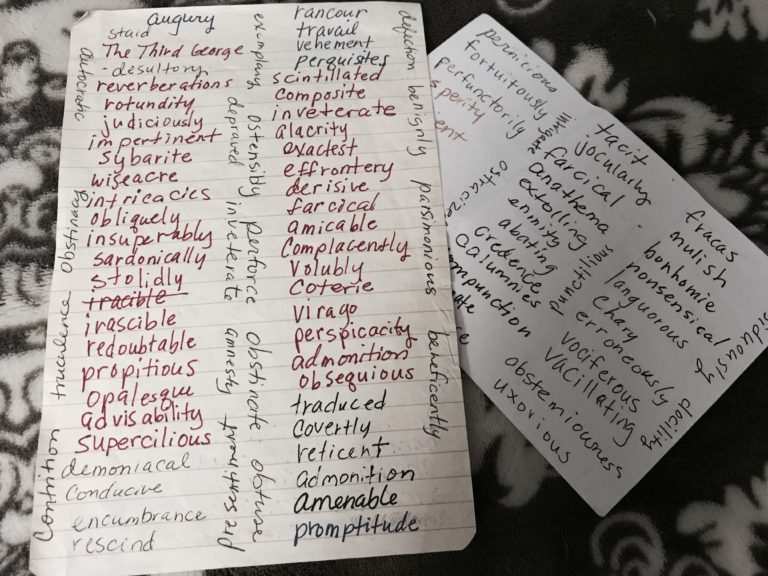 augury
staid
The Third George
- desultory
reverberations
rotundity
judiciously
impertinent
sybarite
wiseacre
intricacies
obliquely
insuperably
sardonically
stolidly
tracible
irascible
redoubtable
propitious
opalesque
advisability
supercilious
demoniacal
conducive
encumbrance
rescind
autocratic
obstinacy
truculence
Contrition
exemplary
ostensibly
perforce
obstinate
obtuse
depraved
inveterate
amnesty
prescient
rancour
travail
vehement
perquistes
scintillated
composite
inveterate
alacrity
exactest
effrontery
derisive
farcical
amicable
complacently
volubly
coterie
virago
perspicacity
admonition
obsequious
traduced
covertly
reticent
admonition
amenable
promptitude
defection
benignly
parsimonious
beneficently
pernicious
fortuitously
perfunctorily
perity
ent
ostracize
mpunction
ate
tacit
jocularity
farcical
anathema
extolling
enmity
abating
credence
calumnies
punctilious
fracas
mulish
bonhomie
nonsensical
languorous
chary
erroneously
vociferous
vacillating
obstemiousness
uxorious
docility
iduously